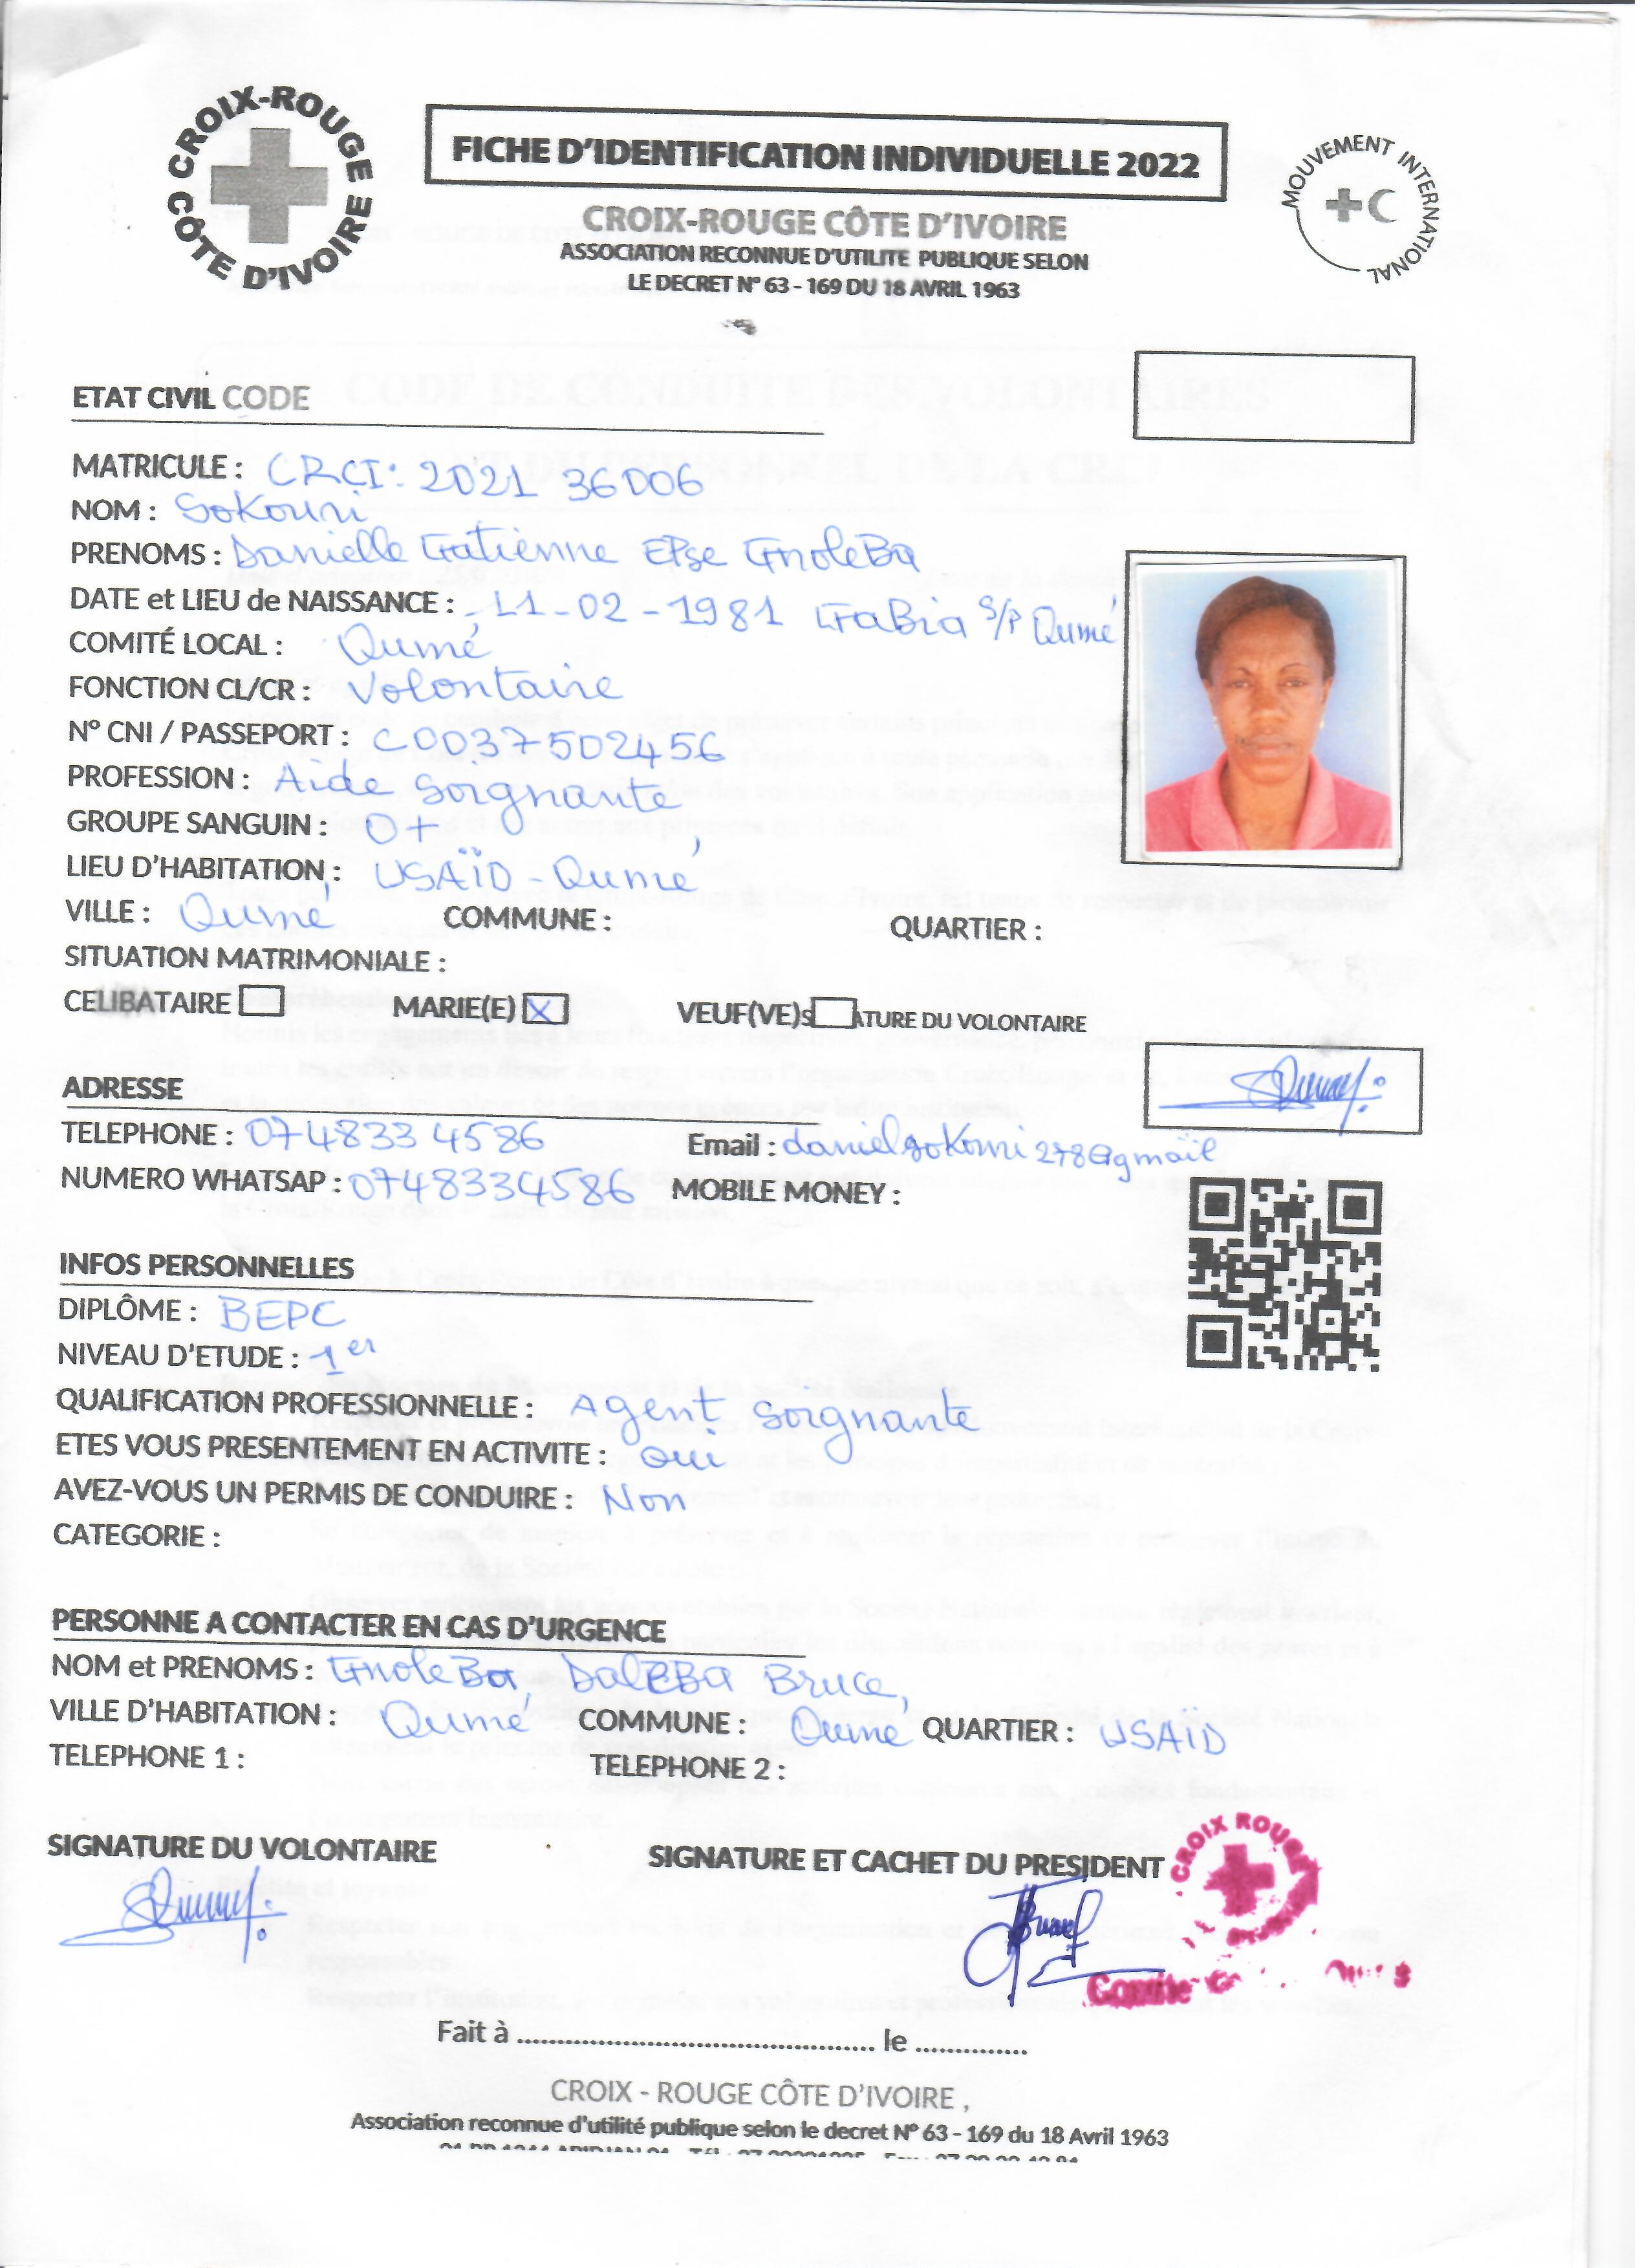 CROIX-ROUGE CÔTE D'IVOIRE
FICHE D'IDENTIFICATION INDIVIDUELLE 2022
MOUVEMENT INTERNATIONAL
CROIX-ROUGE CÔTE D'IVOIRE
ASSOCIATION RECONNUE D'UTILITE PUBLIQUE SELON
LE DECRET N° 63 - 169 DU 18 AVRIL 1963
ETAT CIVIL CODE
MATRICULE : CRCI: 2021 36006
NOM : Sokouri
PRENOMS : Danielle Gatienne EPse GnoleBa
DATE et LIEU de NAISSANCE : 11-02-1981 GaBia S/P Oumé
COMITÉ LOCAL : Oumé
FONCTION CL/CR : Volontaire
N° CNI / PASSEPORT : C0037502456
PROFESSION : Aide Soignante
GROUPE SANGUIN : O+
LIEU D'HABITATION : USAÏD-Oumé
VILLE : Oumé COMMUNE : QUARTIER :
SITUATION MATRIMONIALE :
CELIBATAIRE MARIE(E) X VEUF(VE)s ATURE DU VOLONTAIRE
ADRESSE
TELEPHONE : 0748334586 Email :
NUMERO WHATSAP : 0748334586 MOBILE MONEY :
INFOS PERSONNELLES
DIPLÔME : BEPC
NIVEAU D'ETUDE : 1er
QUALIFICATION PROFESSIONNELLE : Agent Soignante
ETES VOUS PRESENTEMENT EN ACTIVITE : oui
AVEZ-VOUS UN PERMIS DE CONDUIRE : Non
CATEGORIE :
PERSONNE A CONTACTER EN CAS D'URGENCE
NOM et PRENOMS : GnoleBa, DaleBa Bruce,
VILLE D'HABITATION : Oumé COMMUNE : Oumé QUARTIER : USAÏD
TELEPHONE 1 : TELEPHONE 2 :
SIGNATURE DU VOLONTAIRE SIGNATURE ET CACHET DU PRESIDENT
CROIX ROUGE
Comité
Fait à ........................................ le ..............
CROIX - ROUGE CÔTE D'IVOIRE ,
Association reconnue d'utilité publique selon le decret N° 63 - 169 du 18 Avril 1963